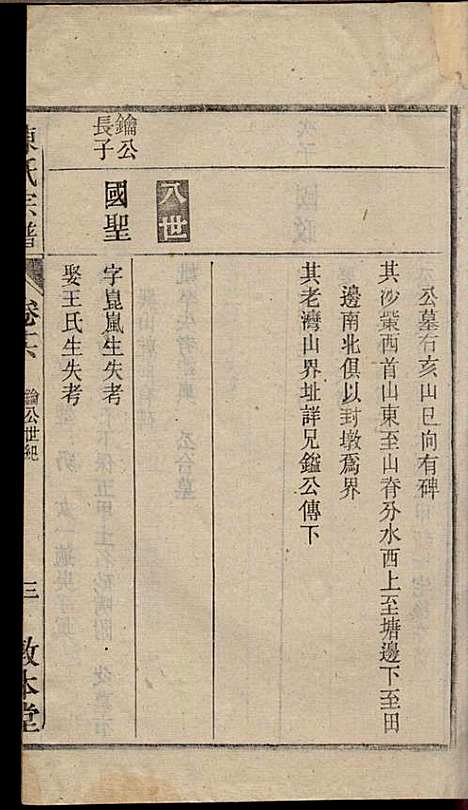 公墓右亥山巳向有碑
其沙䓨西首山東至山脊分水西上至塘邊下至田
邊南北俱以封墩爲界
其老灣山界址詳兄鎰公傳下
八世
鑰公長子
國聖
字崑嵐生失考
娶王氏生失考
陳氏宗譜
卷十六
鑰公世紀
三
敦本堂